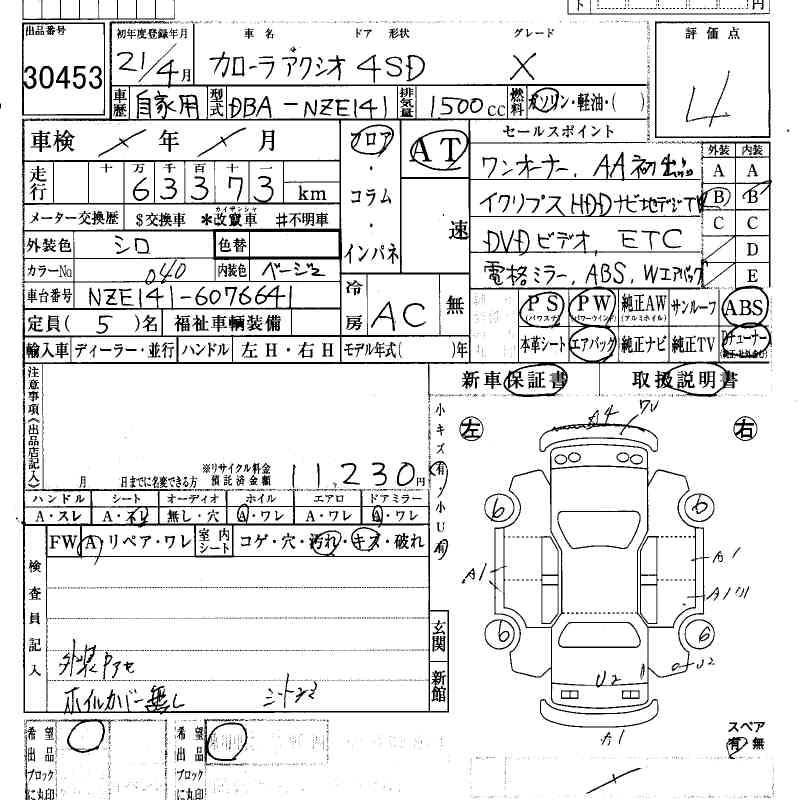 円
出品番号
30453
初年度登録年月
21/4月
車名 ドア 形状 グレード
カローラアクシオ 4SD X
評価点
4
車歴 自家用 型式 DBA-NZE141 排気量 1500cc 燃料 ガソリン・軽油・( )
車検 年 月
走行 十 万 千 百 十 一
6 3 3 7 3 km
メーター交換歴 $交換車 *改竄車 #不明車
カイザンシャ
外装色 シロ 色替
カラーNo 040 内装色 ベージュ
車台番号 NZE141-6076641
定員( 5 )名 福祉車輌装備
輸入車 ディーラー・並行 ハンドル 左H・右H モデル年式( )年
フロア・コラム・インパネ
AT
速
冷房 AC 無
セールスポイント
ワンオーナー、AA初出品
イクリプスHDDナビ地デジTV
DVDビデオ、ETC
電格ミラー、ABS、Wエアバッグ
外装 内装
A A
B B
C C
D
E
PS (パワステ) PW (パワーウインド) 純正AW (アルミホイル) サンルーフ ABS
本革シート エアバッグ 純正ナビ 純正TV チューナー
新車保証書 取扱説明書
注意事項(出品店記入)
月 日までに名変できる方
※リサイクル料金預託済金額 11,230円
小キズ有・小U有
ハンドル シート オーディオ ホイル エアロ ドアミラー
A・スレ A・スレ 無し・穴 A・ワレ A・ワレ A・ワレ
FW A・リペア・ワレ 室内シート コゲ・穴・汚れ・キズ・破れ
検査員記入
外装色アセ
ホイルカバー無し
玄関
新館
左 右
A4
6 6
A1 A1
A1
6 6
U2 U2
A1
スペア
有 無
希望出品ブロックに丸印
希望出品ブロックに丸印